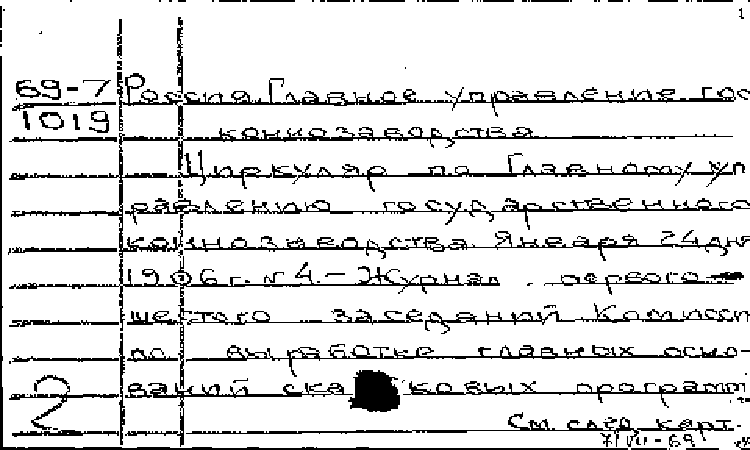 1
69-7 Россия. Главное управление гос
1019 коннозаводства
Циркуляр по Главному уп
равлению государственного
коннозаводства. Января 24 дня
1906 г. № 4. – Журнал первого –
шестого заседаний Комисси
по выработке главных осно-
ваний скаковых программ
2 См. след. карт.